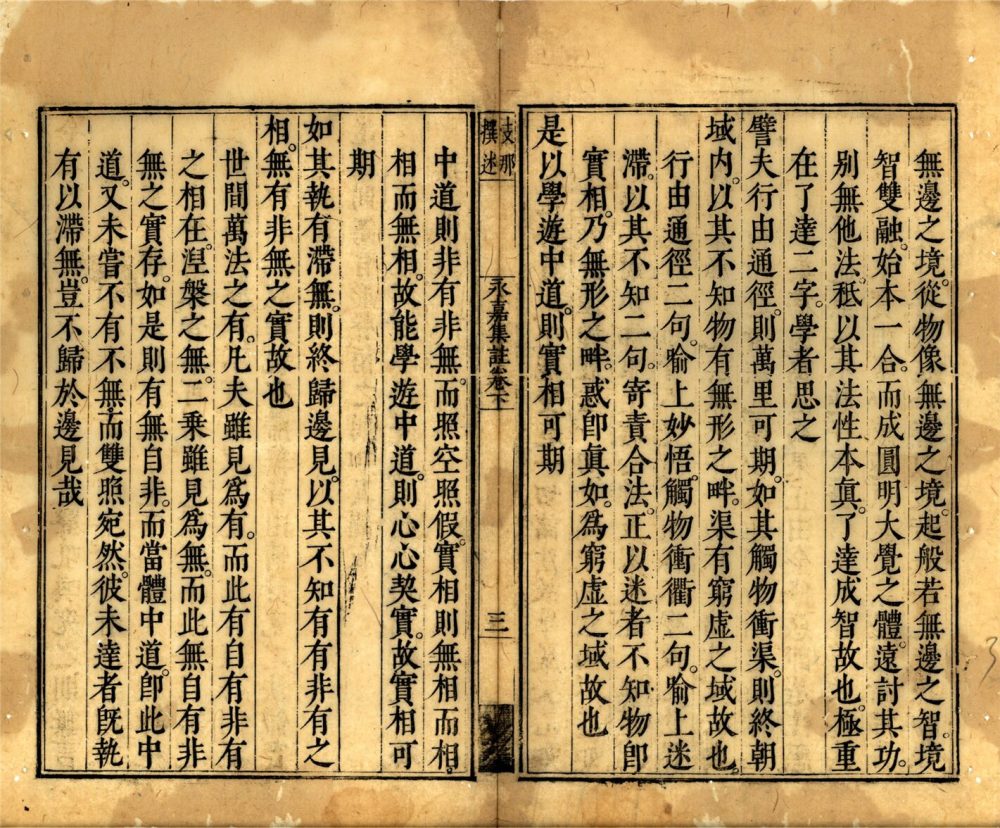 無邊之境。從物像無邊之境。起般若無邊之智。境
智雙融。始本一合。而成圓明大覺之體。遠討其功。
別無他法。秪以其法性本眞。了達成智故也。極重
在了達二字。學者思之
譬夫行由通徑。則萬里可期。如其觸物衝渠。則終朝
域内。以其不知物有無形之畔。渠有窮虛之域故也
行由通徑二句。喻上妙悟。觸物衝衢二句。喻上迷
滯。以其不知二句。寄責合法。正以迷者不知物卽
實相。乃無形之畔。惑卽眞如。爲窮虛之域故也
是以學遊中道。則實相可期
支那
撰述
永嘉集註卷下
三
中道則非有非無。而照空照假。實相則無相而相。
相而無相。故能學遊中道。則心心契實。故實相可
期
如其執有滯無。則終歸邊見。以其不知有有非有之
相。無有非無之實故也
世間萬法之有。凡夫雖見爲有。而此有自有非有
之相在。涅槃之無。二乘雖見爲無。而此無自有非
無之實存。如是則有無自非。而當體中道。卽此中
道。又未嘗不有不無。而雙照宛然。彼未達者旣執
有以滯無。豈不歸於邊見哉